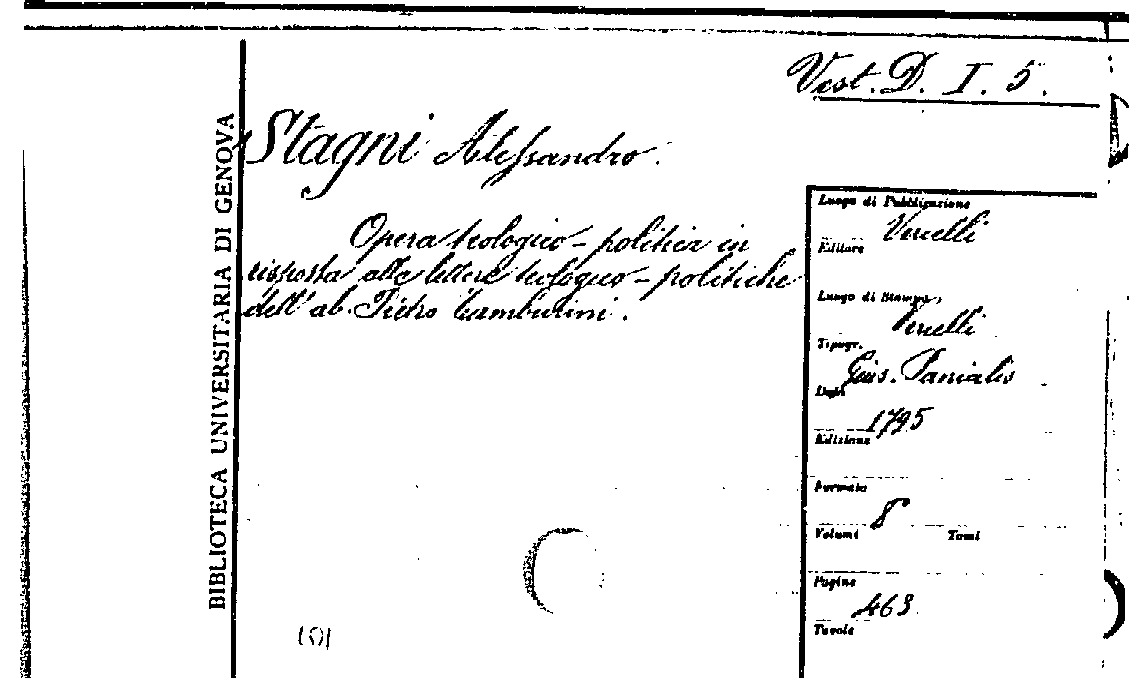 Vest. D. I. 5.
BIBLIOTECA UNIVERSITARIA DI GENOVA
Stagni Alessandro.
Opera teologico-politica in
risposta alle lettere teologico-politiche
dell'ab. Pietro Tamburini.
Luogo di Pubblicazione
Vercelli
Editore
Luogo di Stampa
Vercelli
Tipogr.
Gius. Panialis
Data
1795
Edizione
Formato
8°
Volumi Tomi
Pagine
463
Tavole